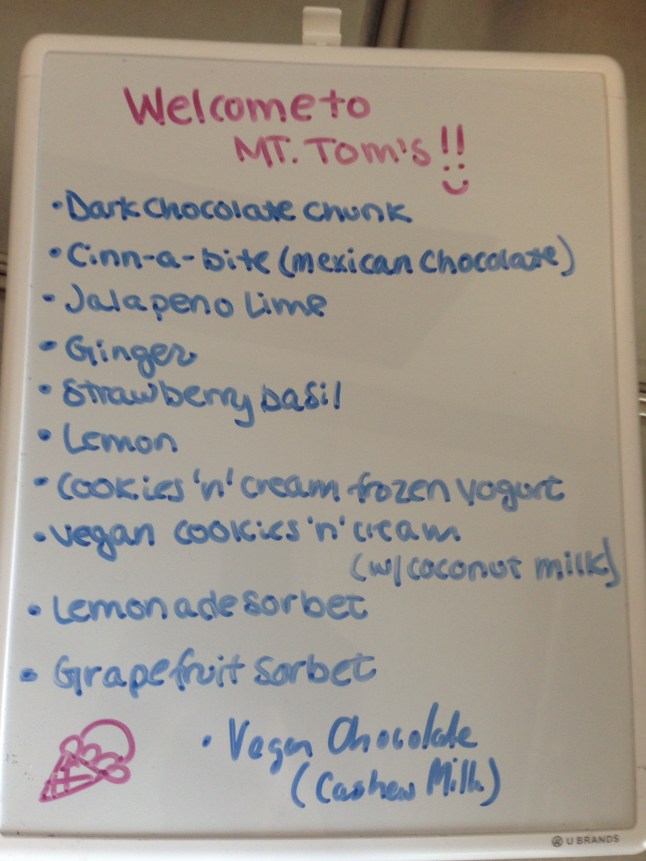 Welcome to
MT. Tom's!!
• Dark Chocolate Chunk
• Cinn-a-bite (mexican Chocolate)
• Jalapeno Lime
• Ginger
• Strawberry basil
• Lemon
• Cookies 'n' cream frozen yogurt
• vegan cookies 'n' cream
(w/coconut milk)
• Lemonade sorbet
• Grapefruit sorbet
• Vegan Chocolate
(Cashew Milk)
U BRANDS